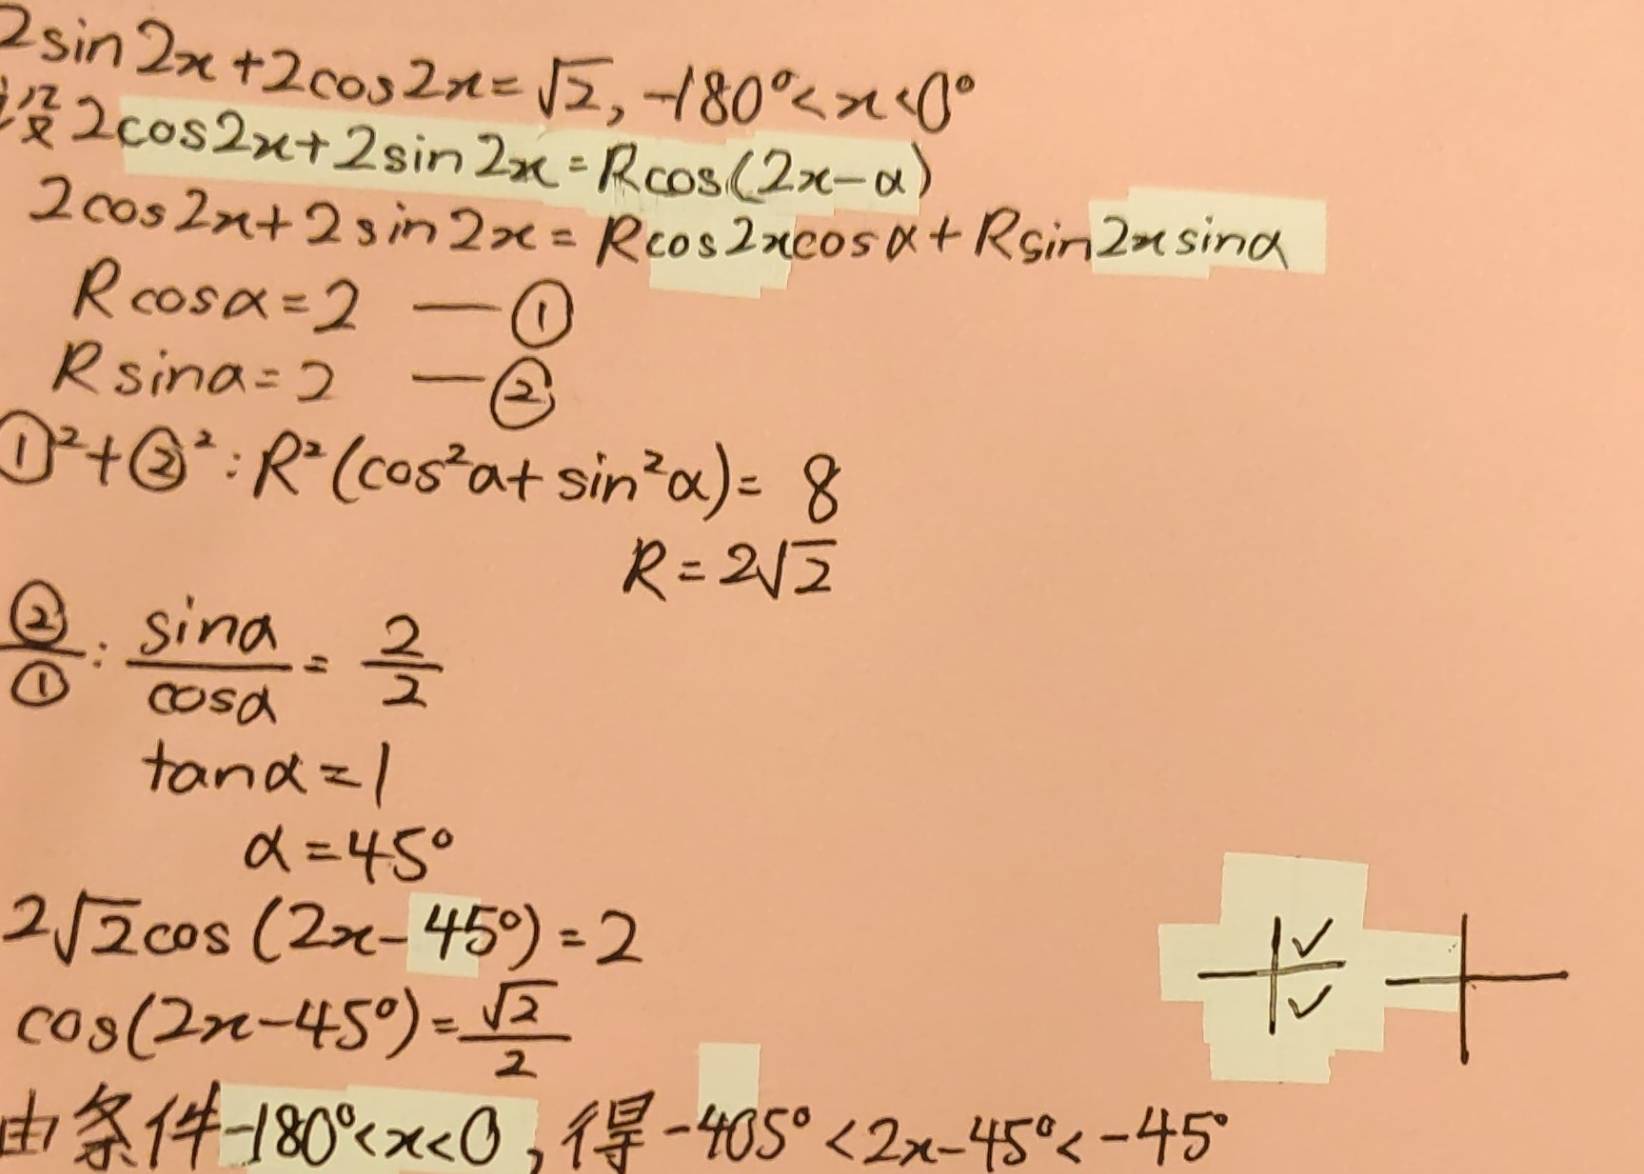 2sin2x+2cos2x=√2, -180°<x<0°
设 2cos2x+2sin2x=Rcos(2x-α)
2cos2x+2sin2x=Rcos2xcosα+Rsin2xsinα
Rcosα=2 —①
Rsinα=2 —②
①²+②²:R²(cos²α+sin²α)=8
R=2√2
②/①: sinα/cosα=2/2
tanα=1
α=45°
2√2cos(2x-45°)=2
cos(2x-45°)=√2/2
由条件-180°<x<0, 得-405°<2x-45°<-45°